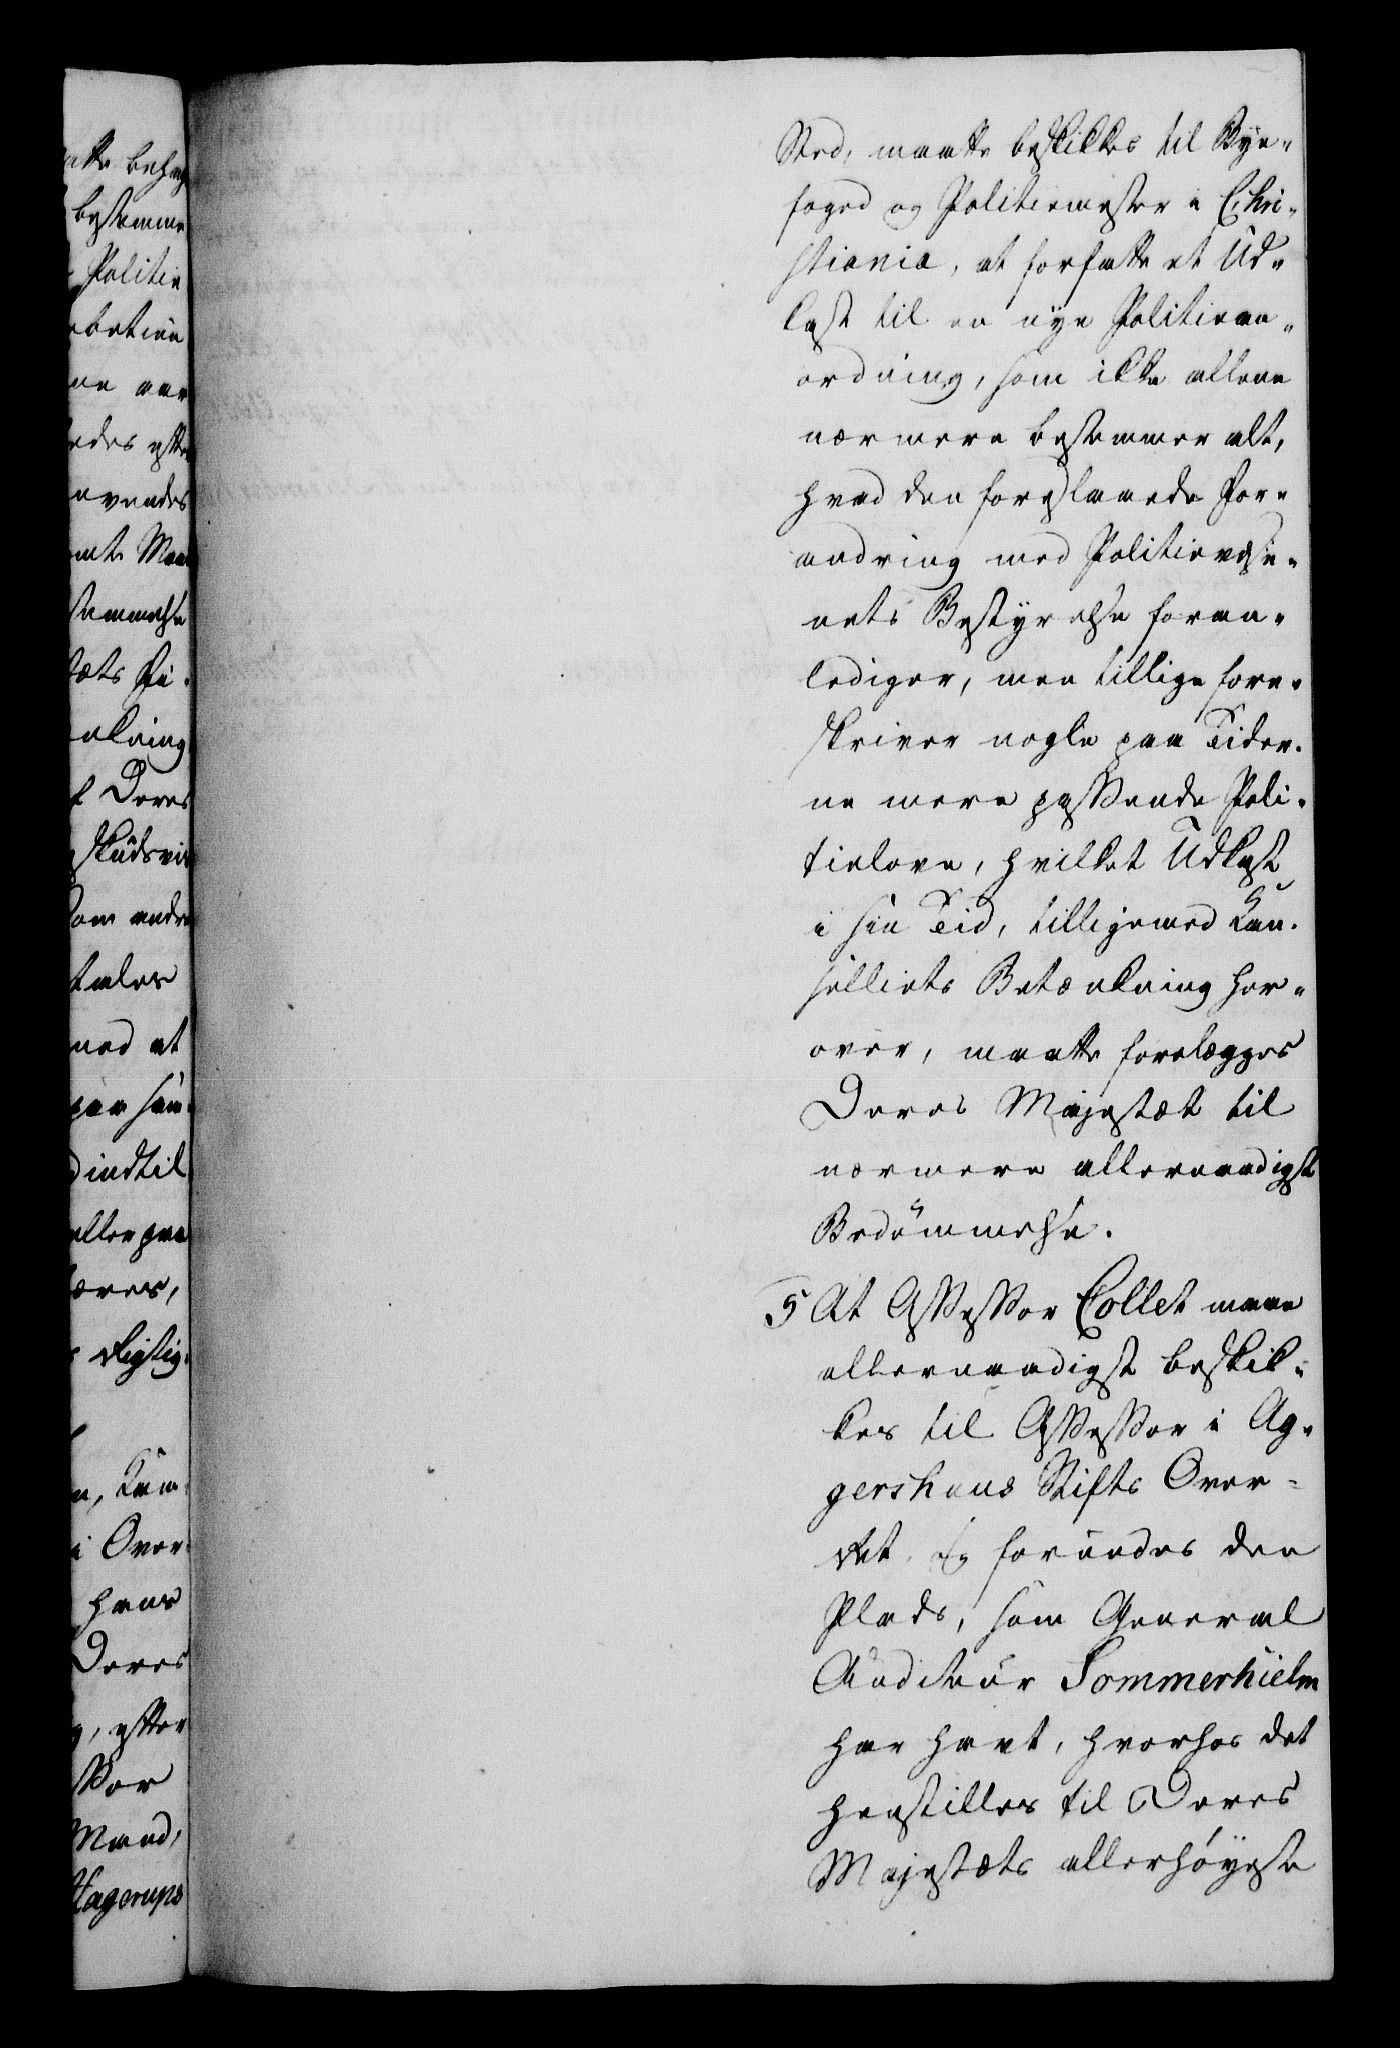 Sted, maatte beskikkes til Bye-
foged og Politiemester i Chri-
stiania, at forfatte et Ud-
kast til en nye Politiean-
ordning, som ikke allene
nærmere bestemmer alt,
hvad den foreslaaede For-
andring med Politievæse-
nets Bestyrelse foran-
lediger, men tillige fore-
skriver nogle paa Tider-
ne mere passende Poli-
tielove, hvilket Udkast
i sin Tid, tilligemed Can-
selliets Betænkning her-
over, maatte forelægges
Deres Majestæt til
nærmere allernaadigst
Bedömmelse.
5 At Assessor Collet maae
allernaadigst beskik-
kes til Assessor i Ag-
gershuus Stifts Over-
ret, og forundes den
Plads, som General
Auditeur Sommerhielm
har havt, hvorhos det
henstilles til Deres
Majestæts allerhöyeste
bestemme
Politie
Deres
andre
med at
indtil
eller paa
Vigtig-
i Over-
hans
Deres
efter
Mand,
Hagerups